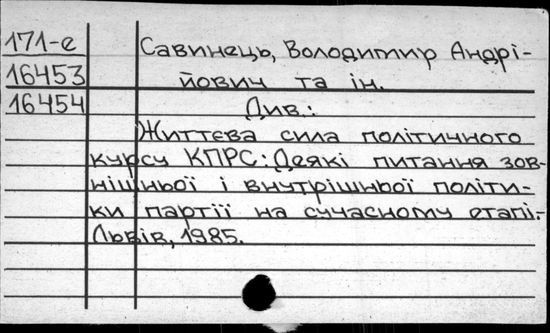 171-е Савинець, Володимир Андрі-
16453 йович та ін.
16454 Див.:
Життєва сила політичного
курсу КПРС: Деякі питання зов-
нішньої і внутрішньої політи-
ки партії на сучасному етапі.-
Львів, 1985.